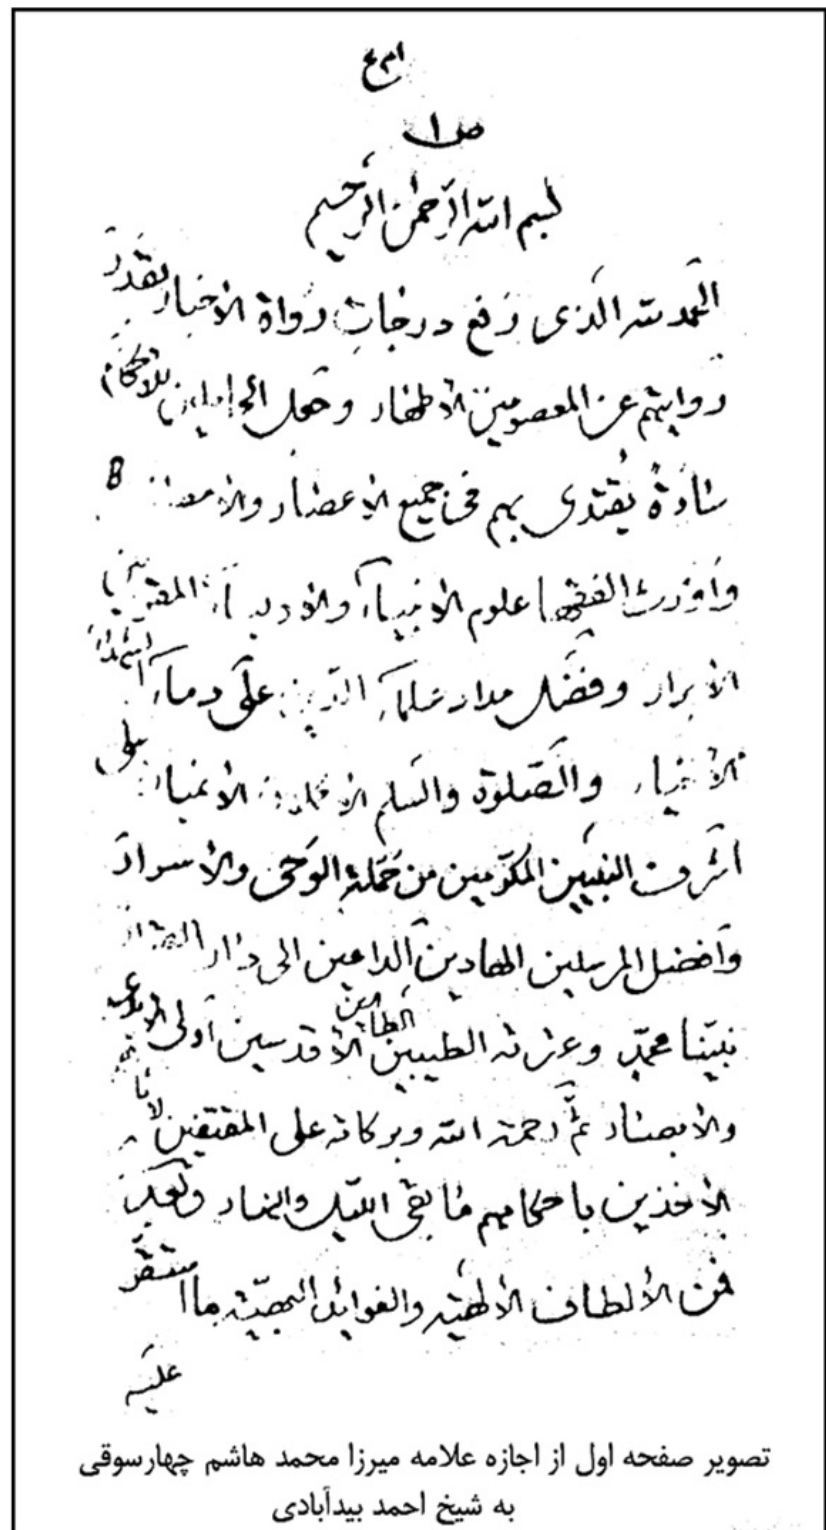 ص ١
بسم الله الرحمن الرحیم
الحمد لله الذی رفع درجات رواة الاخبار بقدر
روایتهم عن المعصومین الاطهار و جعل الحاملین للاحکام
سادةً یُقتدی بهم فی جمیع الاعصار والامصار
و اورث الفقهاء علوم الانبیاء والاوصیاء
الابرار و فضّل مداد علماء الدین علی دماء الشهداء
الاخیار والصلوة والسلام علی
اشرف النبیین المکرّمین من حَمَلة الوحی والاسرار
وافضل المرسلین الهادین الداعین الی دار القرار
نبیّنا محمّدٍ وعترته الطیبین الطاهرین الاقدسین اولی الایدی
والابصار ثمّ رحمة الله وبرکاته علی المقتفین لآثارهم
الآخذین باحکامهم ما بقی اللیل والنهار وبعد
فمن الألطاف الألهیّة والفوائد البهیّة ما استقرّ
علیه
تصویر صفحه اول از اجازه علامه میرزا محمد هاشم چهارسوقی
به شیخ احمد بیدآبادی